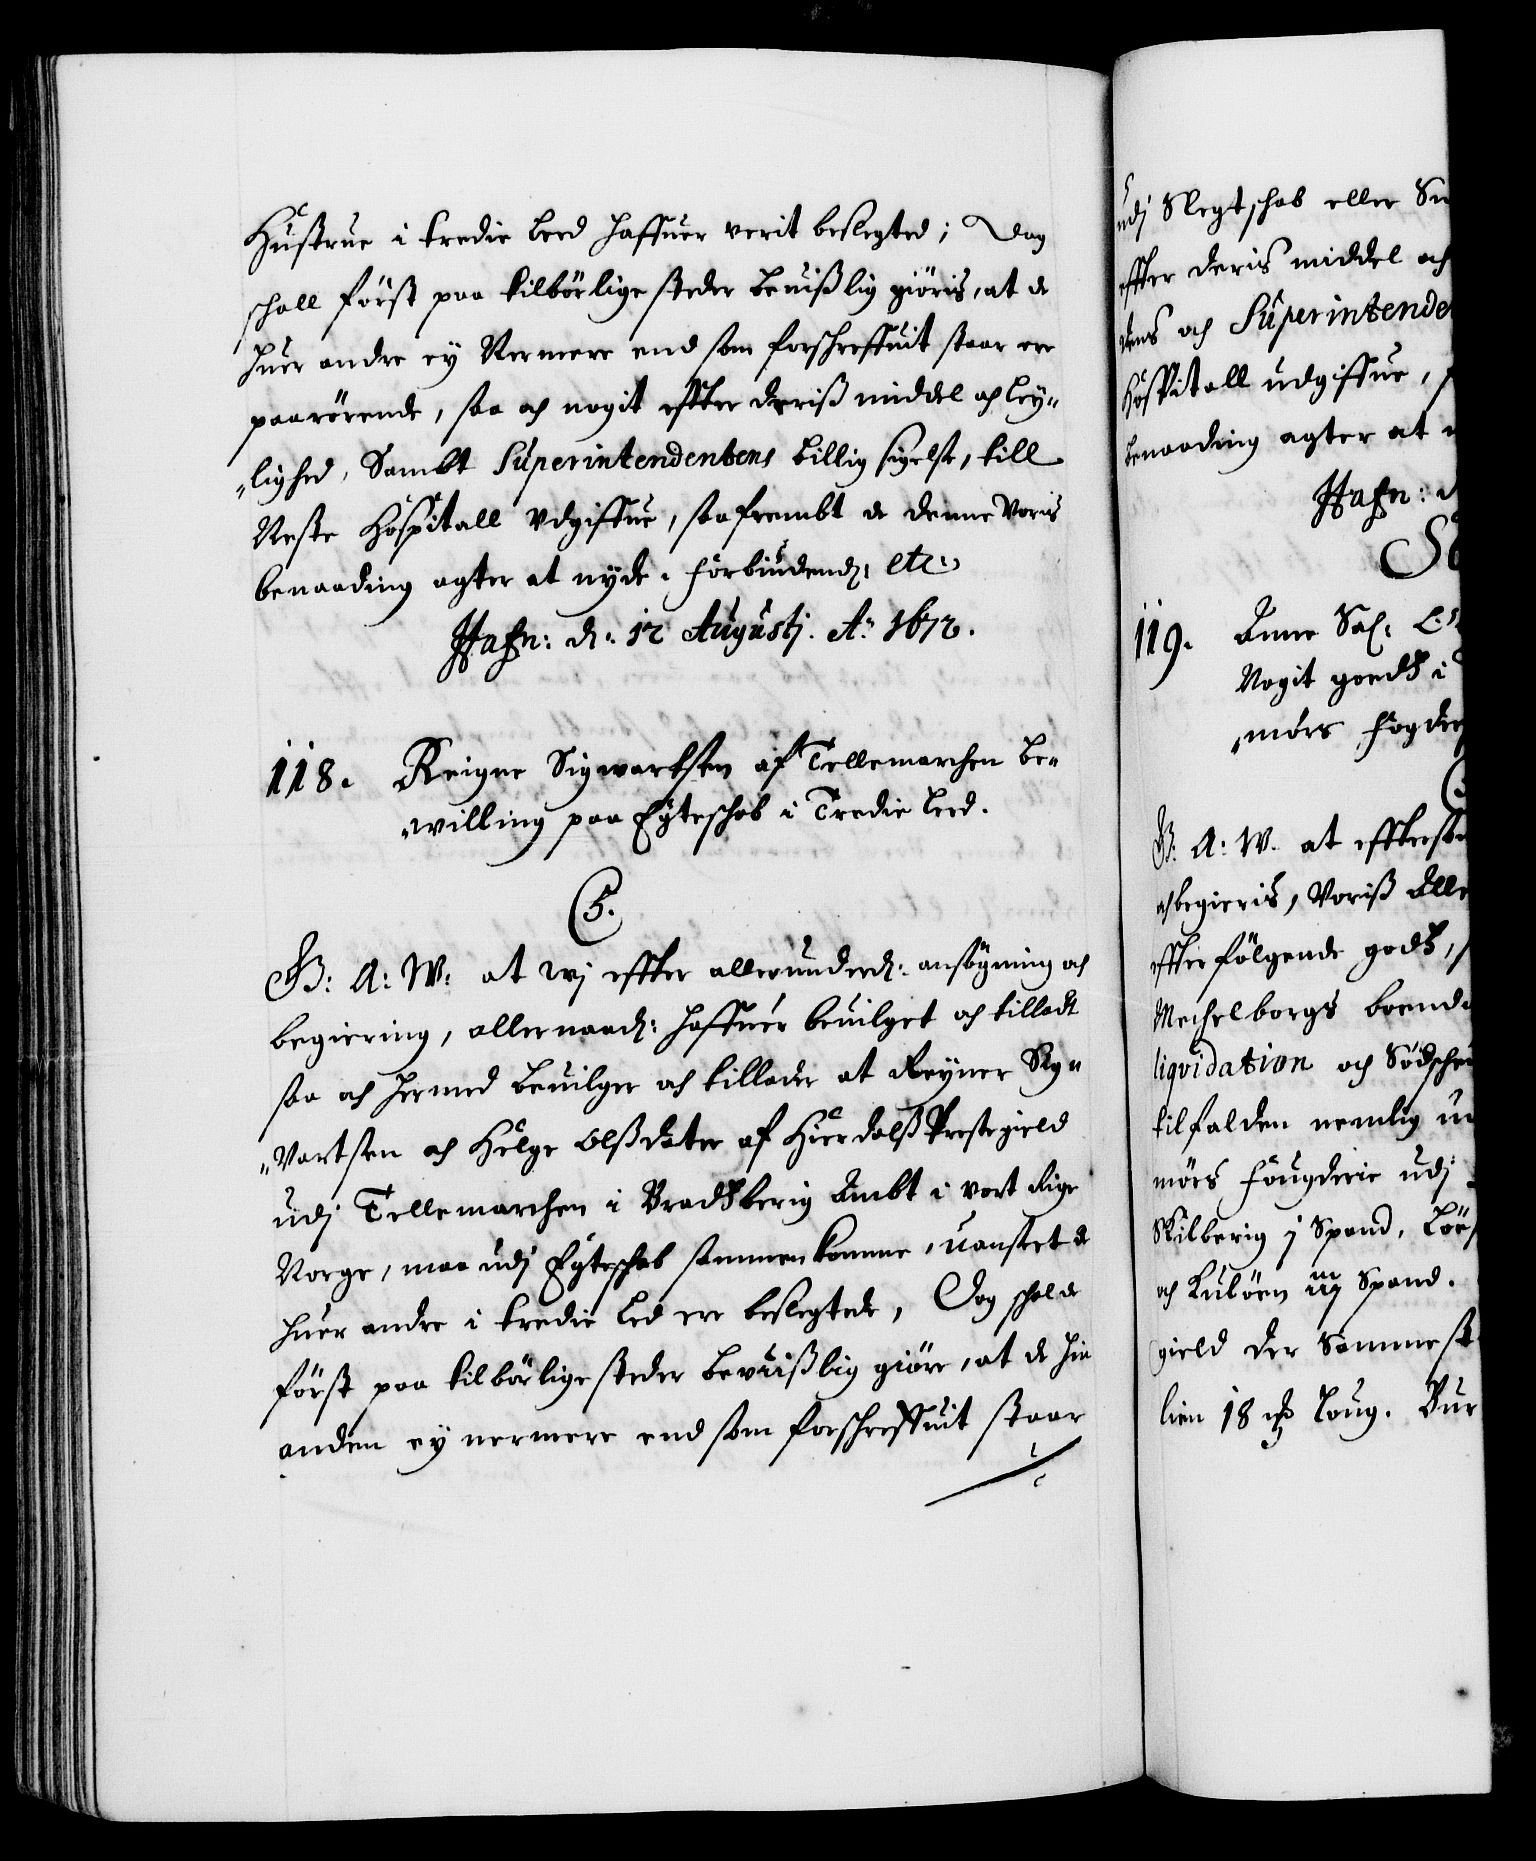 Hustrue i tredie Leed haffuer verit beslegted; Dog
schall först paa tilbörlige steder beuißlig giöris, at de
huer andre ey Nermere end som forschreffuit staar ere
paarörende, saa och nogit effter deriß middel och Ley„
„lighed, Sambt Superintendentens billig sigelse, till
Neste Hospitall Vdgiffue, saafrembt de denne Voris
benaading agter at nyde. Forbiudend: etc:
Hafn: d: 12 Augustj. A: 1672.
118. Reigne Sigvartsen af Tellemarchen be„
„willing paa Egteschab i Tredie Leed.
C 5.
G: A: W: at wj effter allerunderd: ansögning och
begiering, allernaad: haffuer beuilget och tilladt
saa och hermed beuilger och tillader at Reyner Sig„
„Vartsen och Helge Olßdater af Hierdalß Prestegield
udj Tellemarchen i Bradsberig Ambt i vort Rige
Norge, maa udj Egteschab sammenkomme, uanseet de
huer andre i tredie Led ere beslegtede, Dog schal de
först paa tilbörlige steder bevuißlig giöre, at de hin
anden ey nermere end som forschreffuit staar
udj Slegtschab eller
effter deris middel och
dens och Superintende
Hospitall udgiffue,
benaading agter at
Hafn: d
119. Anne Sal:
Nogit goeds i
„mörs Fogder
G: A: W. at effterso
och begieris, Voriß Alle
effterfölgende gods,
Mechelborgs boend
liqvidation och
tilfalden nemlig
mörs Fougderie udj
Skilberig j Spand,
och Kulöen iij Spand.
gield der Sammest
lien 18 Loug.